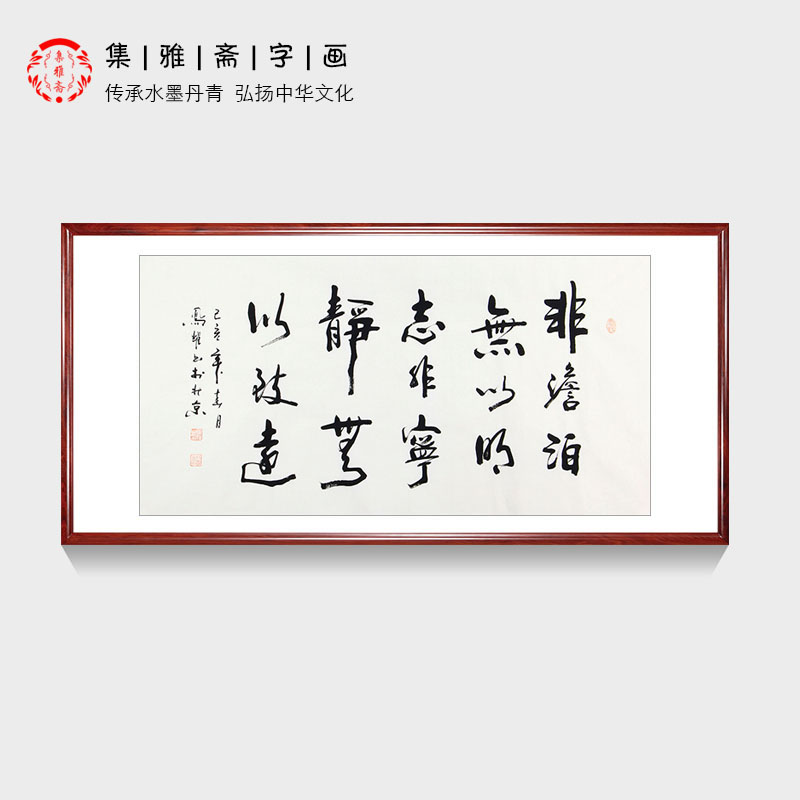 集雅斋
集|雅|斋|字|画
传承水墨丹青 弘扬中华文化
非澹泊
無以明
志非寧
靜無
以致遠
己亥年春月
書於北京